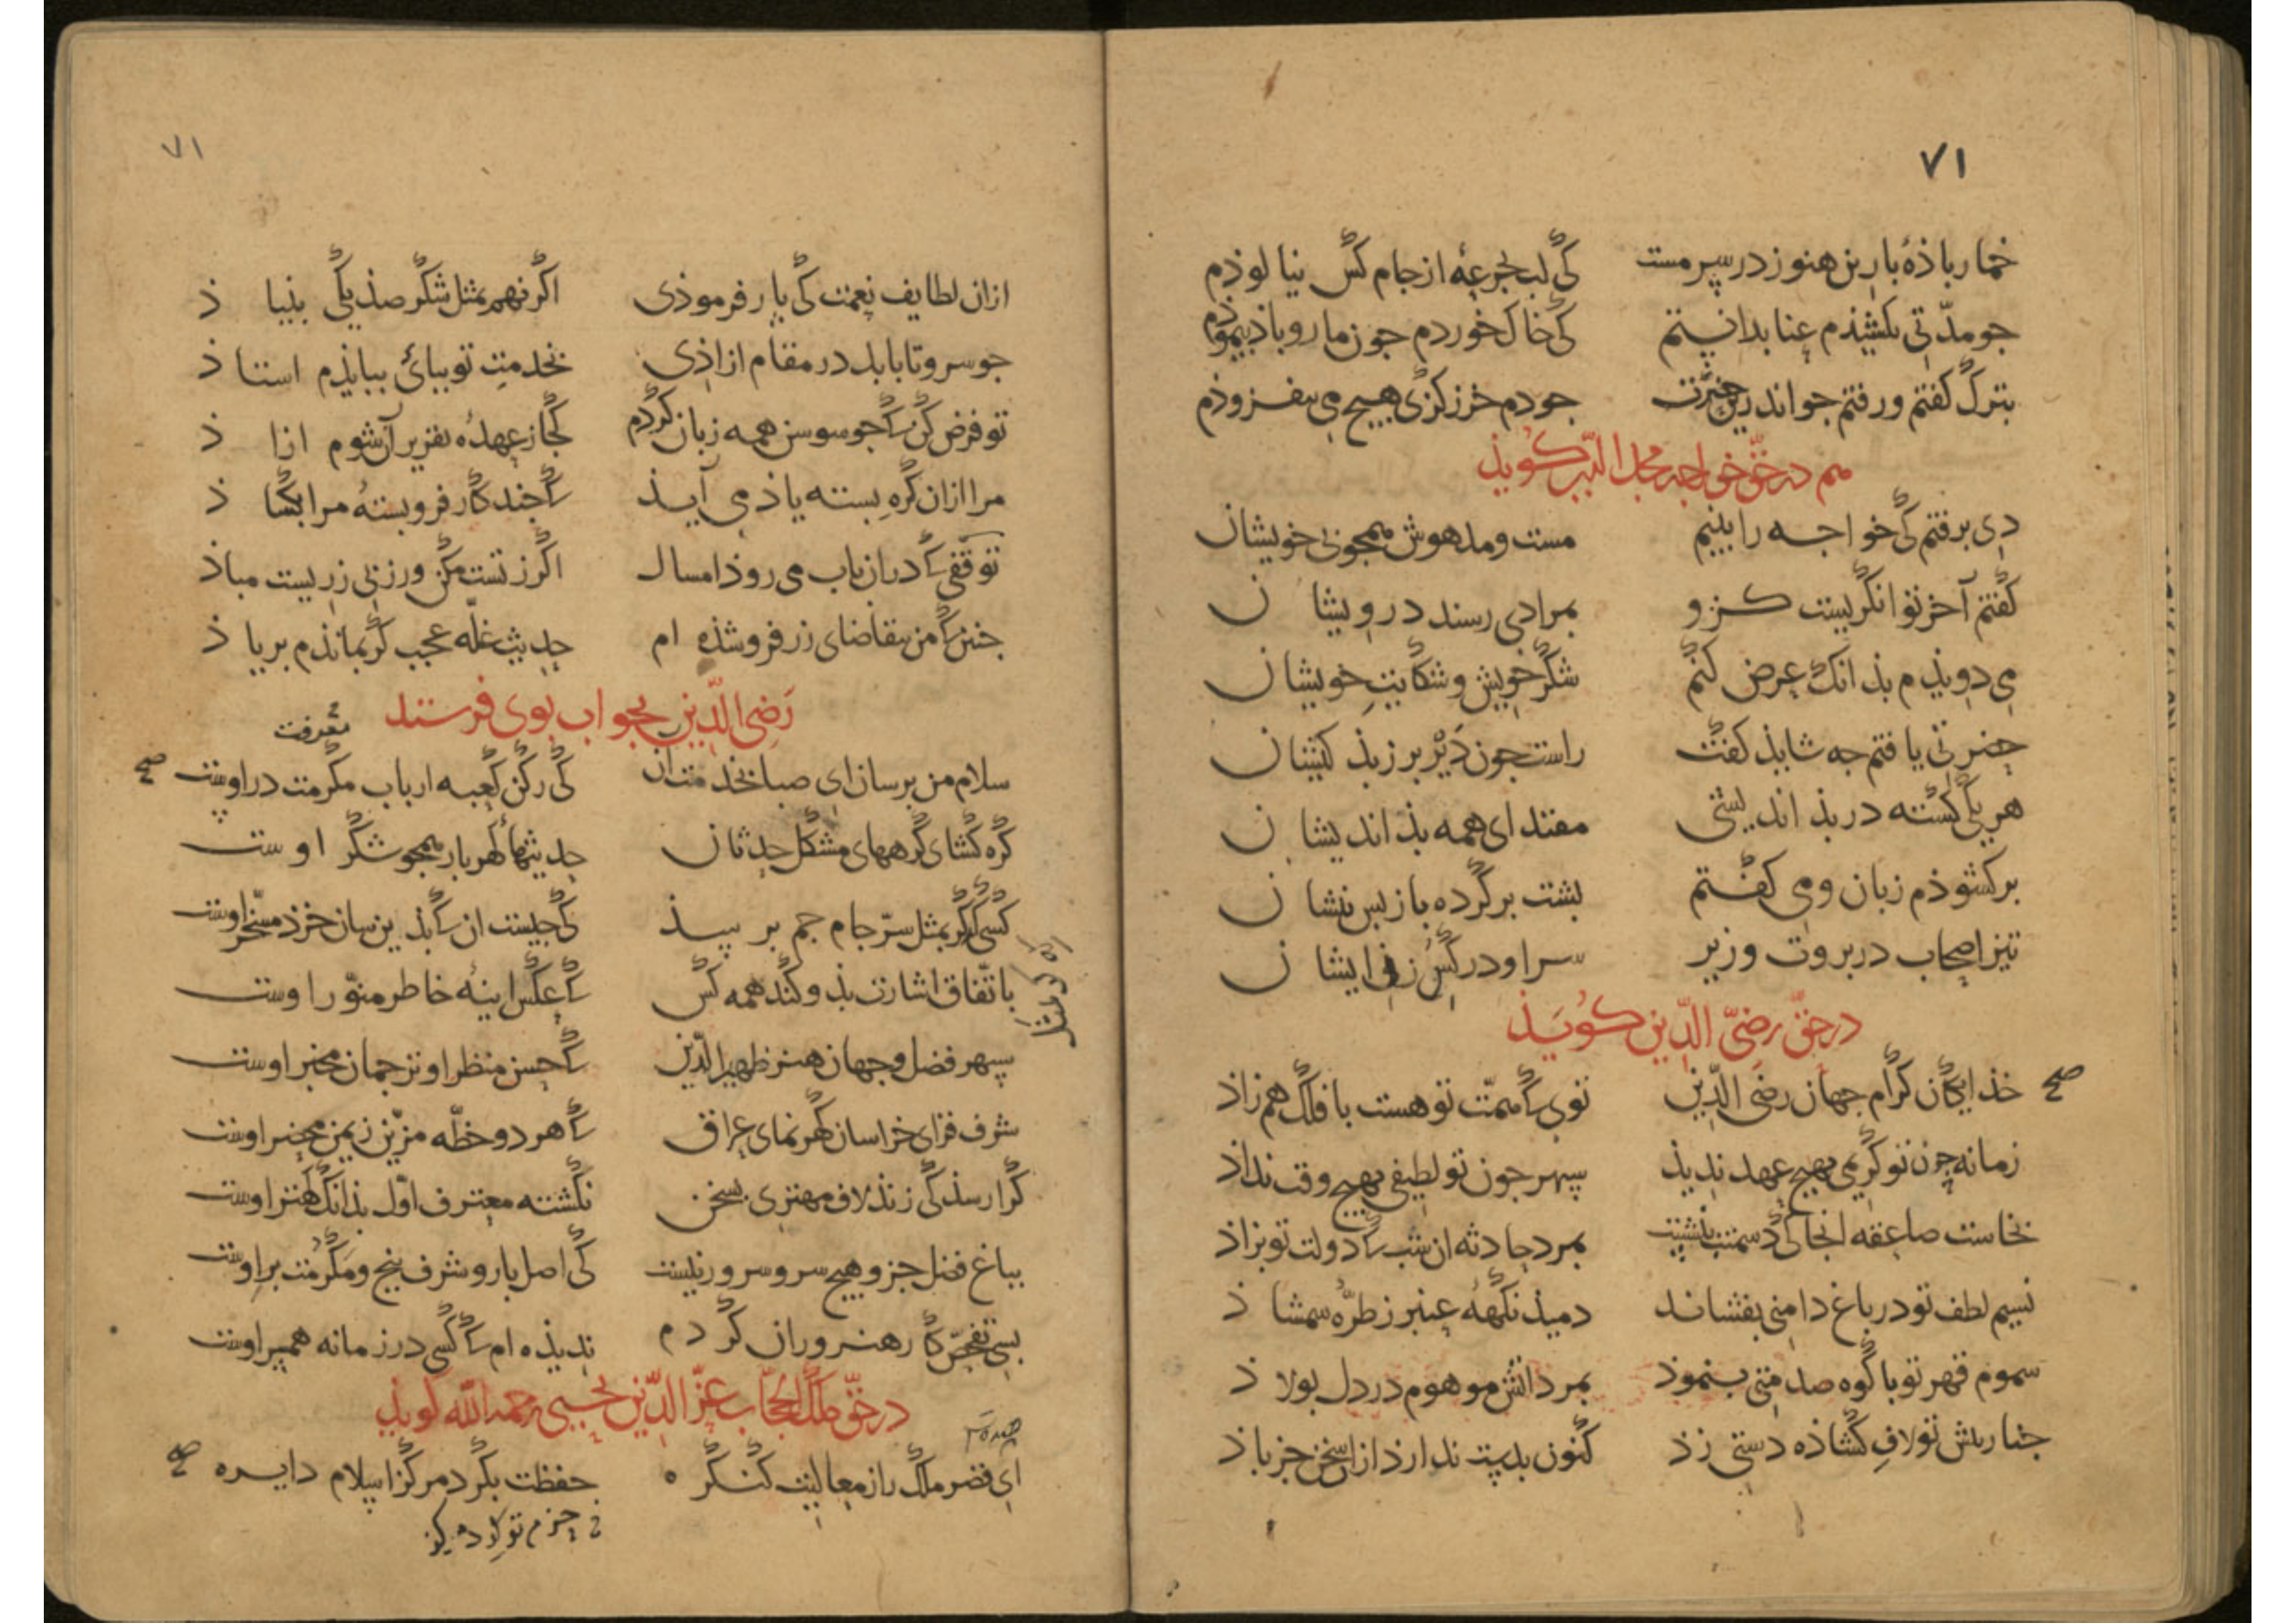 ۷۱
خمار باذهٔ بارین هنوز در سر مست کی لب بجرعهٔ از جام کس نیالوذم
جو مدّتی بکشیذم عنا بدانستم کی خاک خوردم جون مار و باذ بیموذم
بترک کفتم و رفتم جو اندرین حضرت جو دم خرز کزی هیچ می نیفزوذم
هم در حقّ خواجه مجد الدّین کویذ
دی برفتم کی خواجه را بینم مست و مدهوش همجو بی خویشان
کفتم آخر توانکریست کزو بمرادی رسند درویشان
می دویذم بذانک عرض کنم شکر خویش و شکایت خویشان
حضرتی یافتم جه شایذ کفت راست جون دَیْر بر ز بذ کیشان
هر یکی کشته در بذ اندیشی مقتدای همه بذ اندیشان
برکشوذم زبان و می کفتم بشت بر کرده باز بس بیشان
تیز اصحاب در بروت وزیر سر او در کس زن ایشان
در حقّ رضیّ الدّین کویَذ
خذایکان کرام جهان رضی الدّین توی کَ همّت تو هست با فلک هم زاذ صح
زمانه جون تو کریمی بهیچ عهد ندیذ سپهر جون تو لطیفی بهیچ وقت نداذ
نخاست صاعقه انجا کی دشمنت بنشست بمرد حادثه ان شب کَ دولت تو بزاذ
نسیم لطف تو در باغ دامنی بفشاند دمیذ نکهة عنبر ز طرّهٔ شمشاذ
سموم قهر تو با کوه صدمتی بنموذ بمرد اتش موهوم در دل بولاذ
جنار بیش تو لافِ کشاذه دستی زذ کنون بدست ندارذ ازان سخن جز باذ
۷۱
ازان لطایف نعمت کی یار فرموذی اکر نهم بمثل شکر صذ یکی بنیاذ
جو سرو تا بابد در مقام ازاذی بخدمت تو ببائ ببایذم استاذ
تو فرض کن کَ جو سوسن همه زبان کردم کجا ز عهدهٔ تقریر آن شوم ازاذ
مرا ازان کره بسته یاذ می آیذ کَ جند کار فروبستهٔ مرا بکشاذ
توقّفی کَ دران باب می روذ امسال اکر ز تست مکن ور ز بی زریست مباذ
جنین کَ من بتقاضای زر فروشذه ام حدیث غلّه عجب کر بمانذم بر یاذ
رَضی الدّین بجواب بوی فرستد
معرفت
سلام من برسان ای صبا بخدمت ان کی رکن کعبه ارباب مکرمت در اوست صح
کره کشای کرههای مشکل حدثان حدیثهاء کهربار همجو شکر اوست
کسی کی کر بمثل سرّ جام جم برسذ کی جیست ان کَ بذین سان خرذ مسخّر اوست
باتّفاق اشارت بذو کند همه کس کَ عکس اینهٔ خاطر منوّر اوست
سپهر فضل و جهان هنر ظهیر الدّین کَ حسن منظر او ترجمان مخبر اوست
شرف فزای خراسان کهر نمای عراق کَ هر دو خطّه مزیّن ز یمن محضر اوست
کرا رسذ کی زنذ لاف مهتری بسخن نکشته معترف اوّل بذانک کهتر اوست
بباغ فضل جزو هیچ سرو سرور نیست کی اصل بار و شرف بیخ و مَکرُمت بر اوست
بسی تفحّص کار هنروران کردم ندیذه ام کَ کسی در زمانه همبر اوست
در حقّ ملک الحجّاب عزّ الدّین یحیی رحمه الله کویذ
ای قصر ملک را ز معالیت کنکره حفظت بکرد مرکز اسلام دایره صح
حزم تو کرد